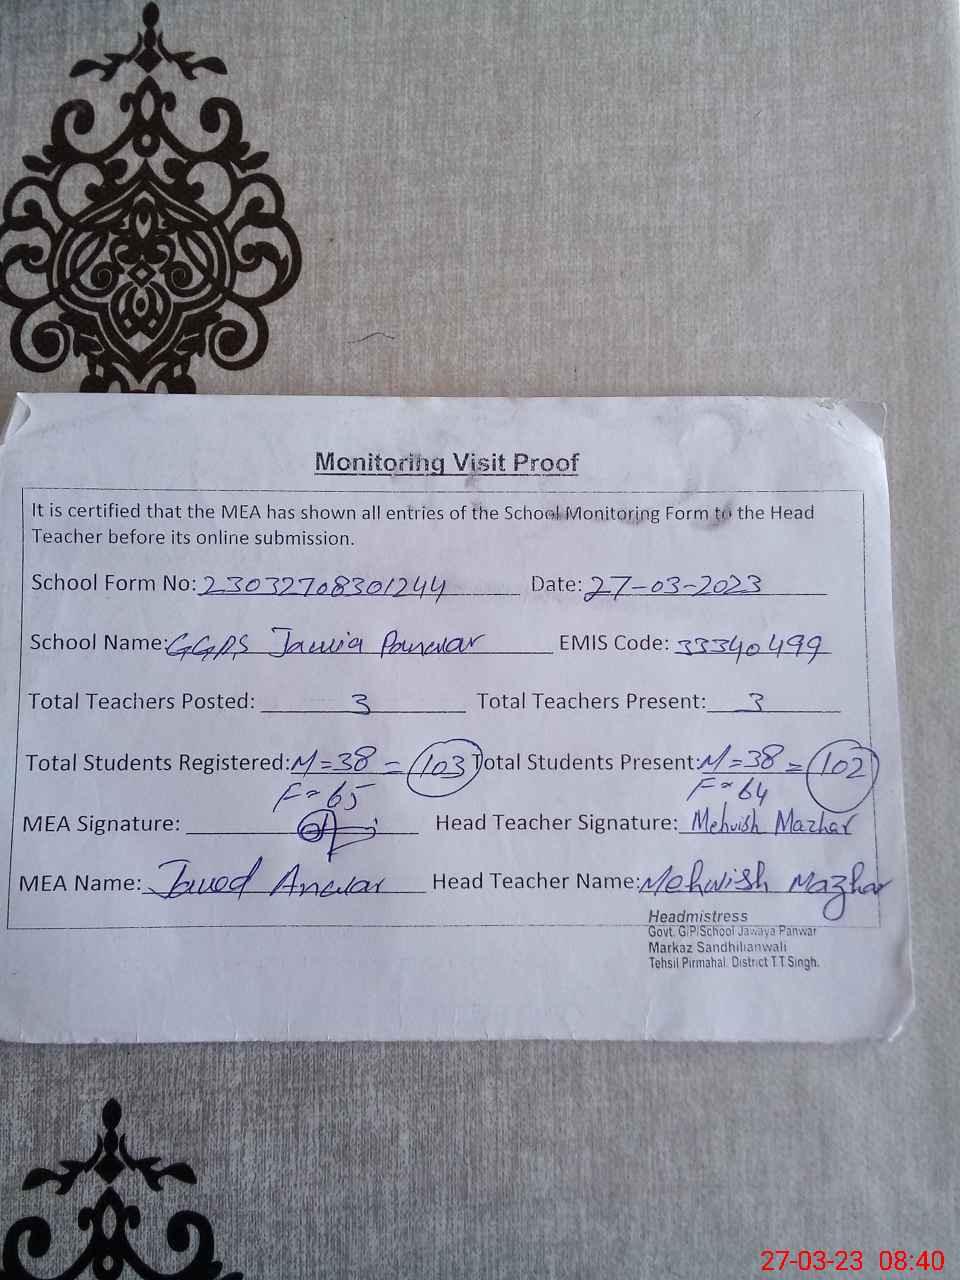 Monitoring Visit Proof
It is certified that the MEA has shown all entries of the School Monitoring Form to the Head
Teacher before its online submission.
School Form No: 23032708301244 Date: 27-03-2023
School Name: GGPS Jawia Panwar EMIS Code: 33340499
Total Teachers Posted: 3 Total Teachers Present: 3
Total Students Registered: M=38 = 103 Total Students Present: M=38 = 102
F=65 F=64
MEA Signature: Head Teacher Signature: Mehwish Mazhar
MEA Name: Javed Anwar Head Teacher Name: Mehwish Mazhar
Headmistress
Govt. G/P/School Jawaya Panwar
Markaz Sandhilianwali
Tehsil Pirmahal. District T.T Singh.
27-03-23 08:40